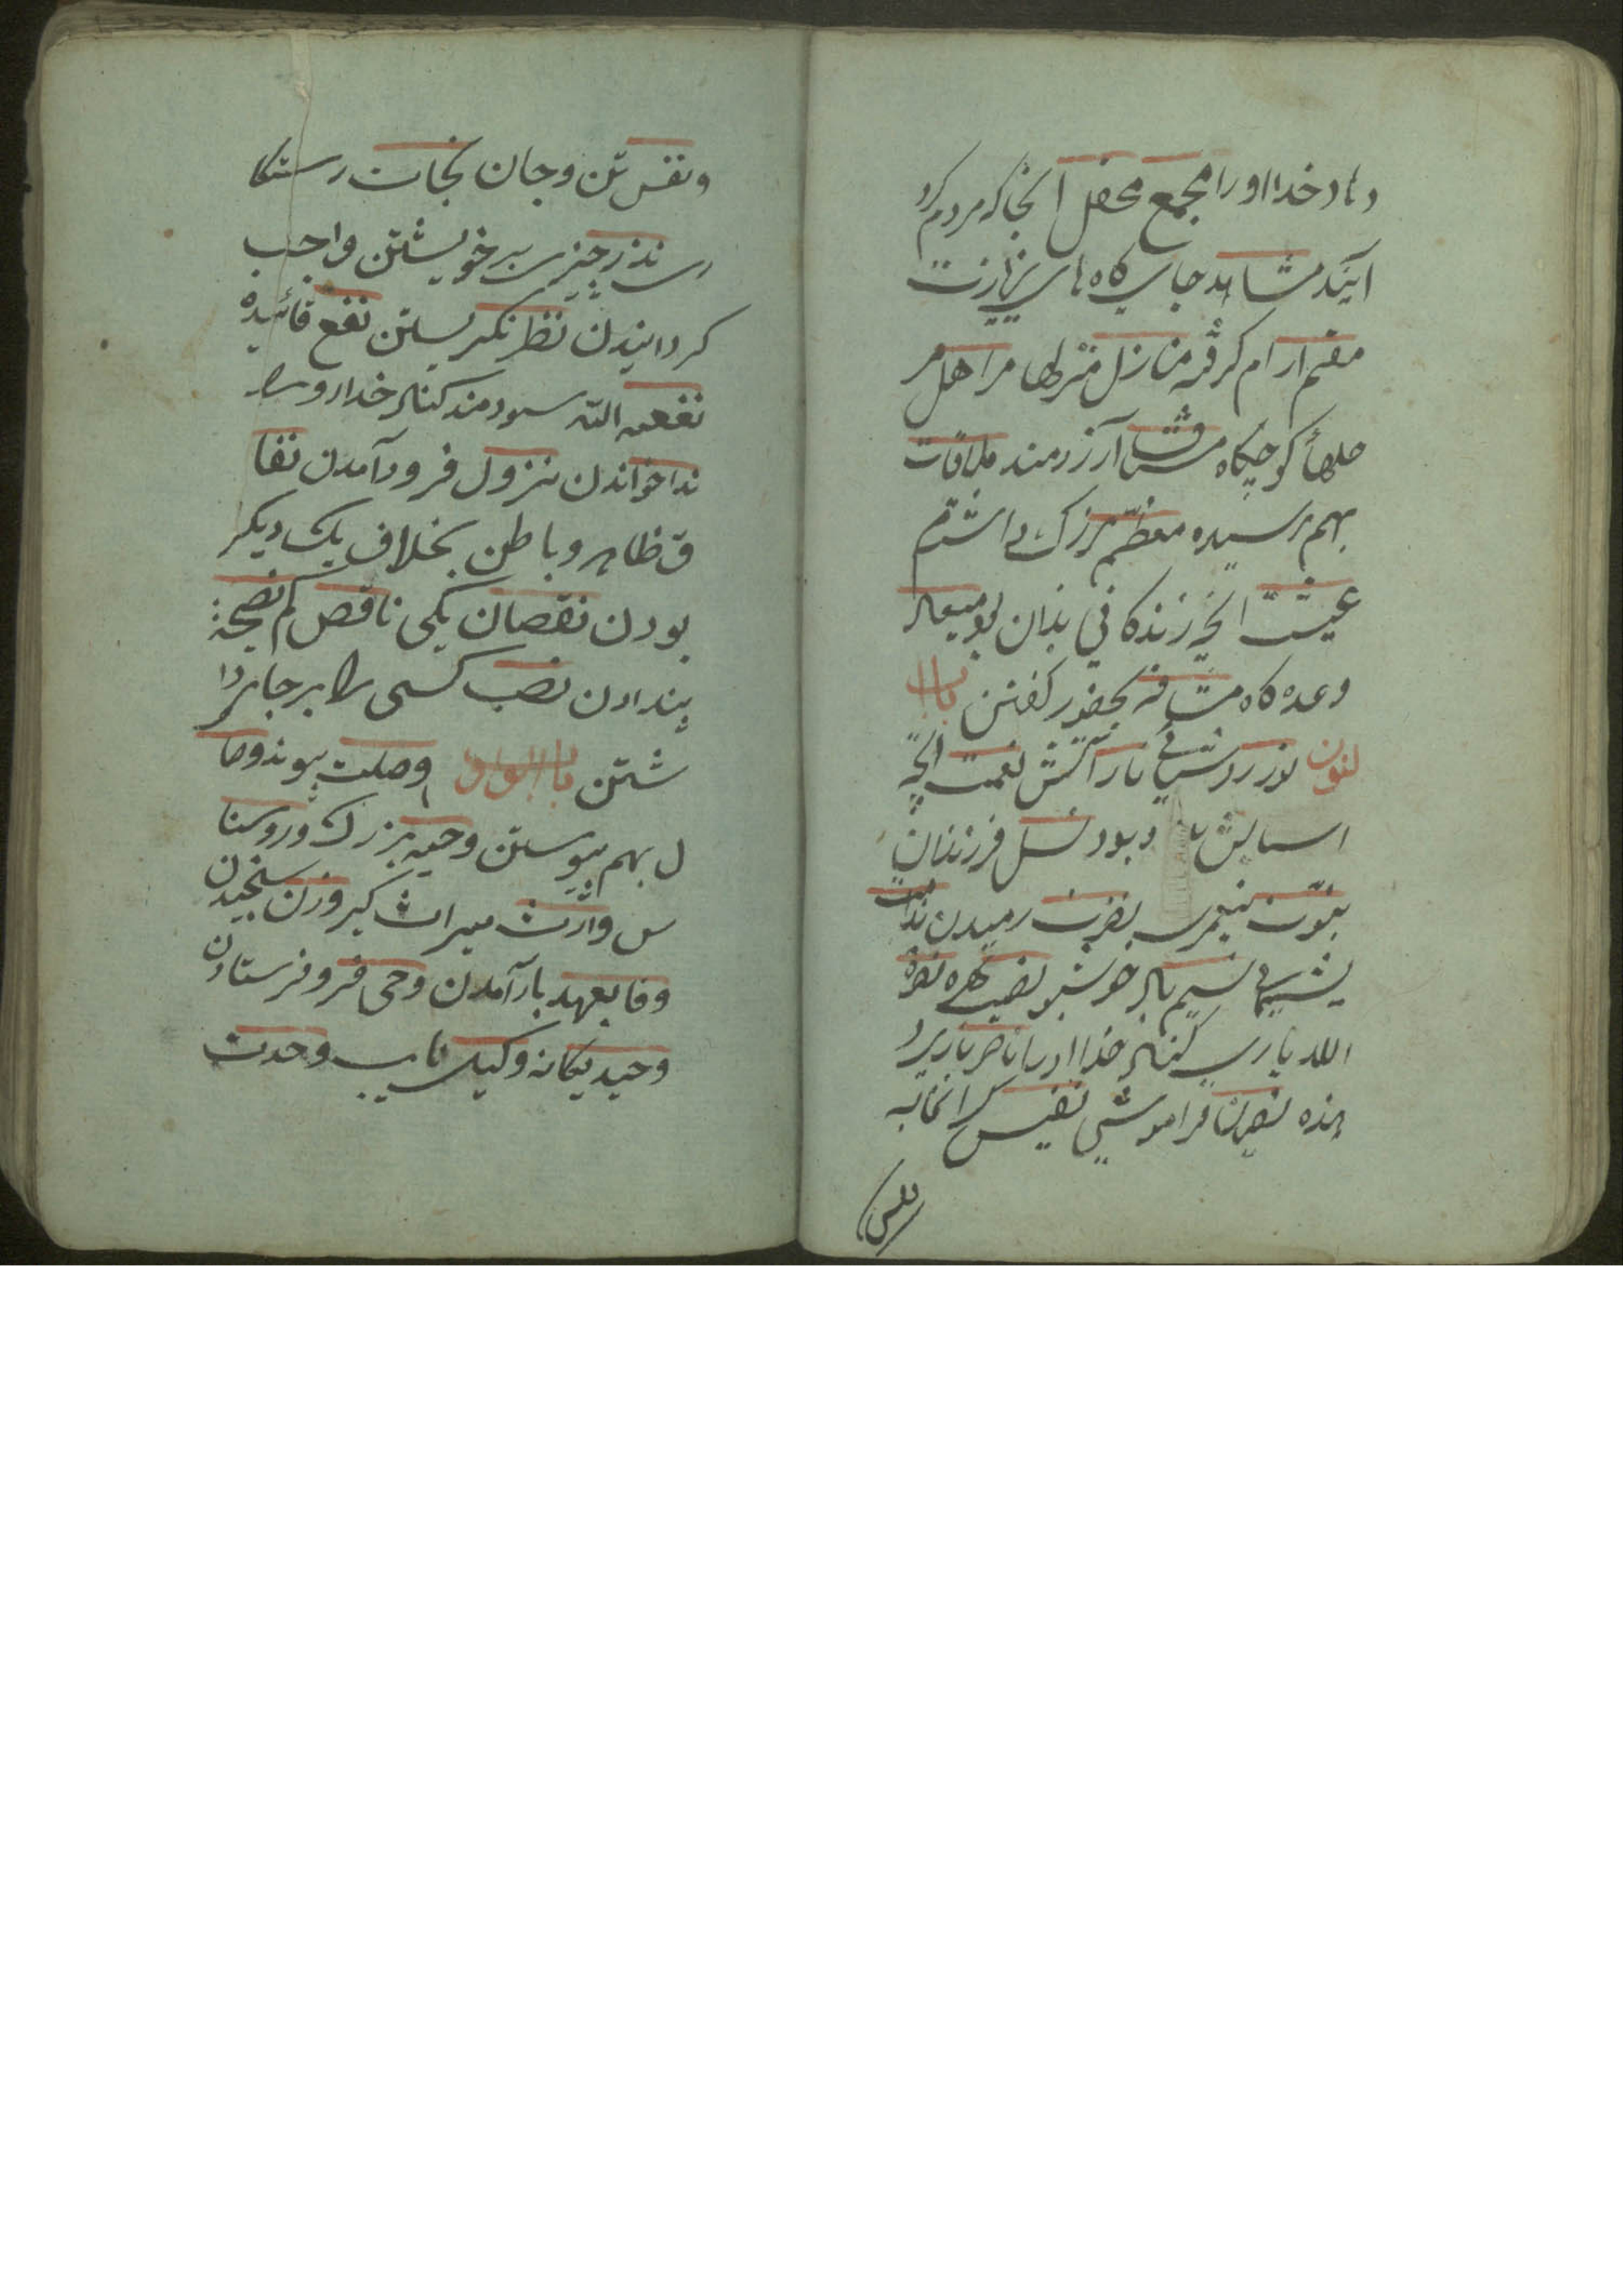 داد خدا او را مجمع محفل آنجا که مردم کرد
آیند مشاهد جای کاه های زیارت
مقیم آرام کرفته منازل منزلها مراحل مر
حلها کوچکاه مشتاق آرزومند ملاقات
بهم رسیده معظم بزرک داشته
عیشت انچه زندکانی بدان بود میعاد
وعده کاه مشافه بحضور کفتن باب
لنون نور روشنائی نار آتش نعمت انچه
اسایش بود نسل فرزندان
نبوّت پیغمبری نفرت رمیدن ندامت
پشیمانی نسیم باد خوشبو نصیب بهره نصره
الله یاری کناد خدا او را ناصر یاری د
هنده نسیان فراموشی نفیس کرانمایه
نفس
و نفس تن و جان نجات رستکا
ری نذر چیزی بر خویشتن واجب
کردانیدن نظر نکریستن نفع فائیده
نفعه الله سودمند کناد خدا او را
ندا خواندن نزول فرود آمدن نفا
ق ظاهر و باطن بخلاف یک دیکر
بودن نقصان یکمی ناقص کم نصیحة
پند دادن نصب کسی را بر جا بردا
شتن باب الواو وصلت پیوند وصا
ل بهم پیوستن وجیه بزرک و روشنا
س وارث میراث کیر وزن سنجیدن
وفا بعهد باز آمدن وحی فرو فرستادن
وحید یکانه وکیل نایب وحدت